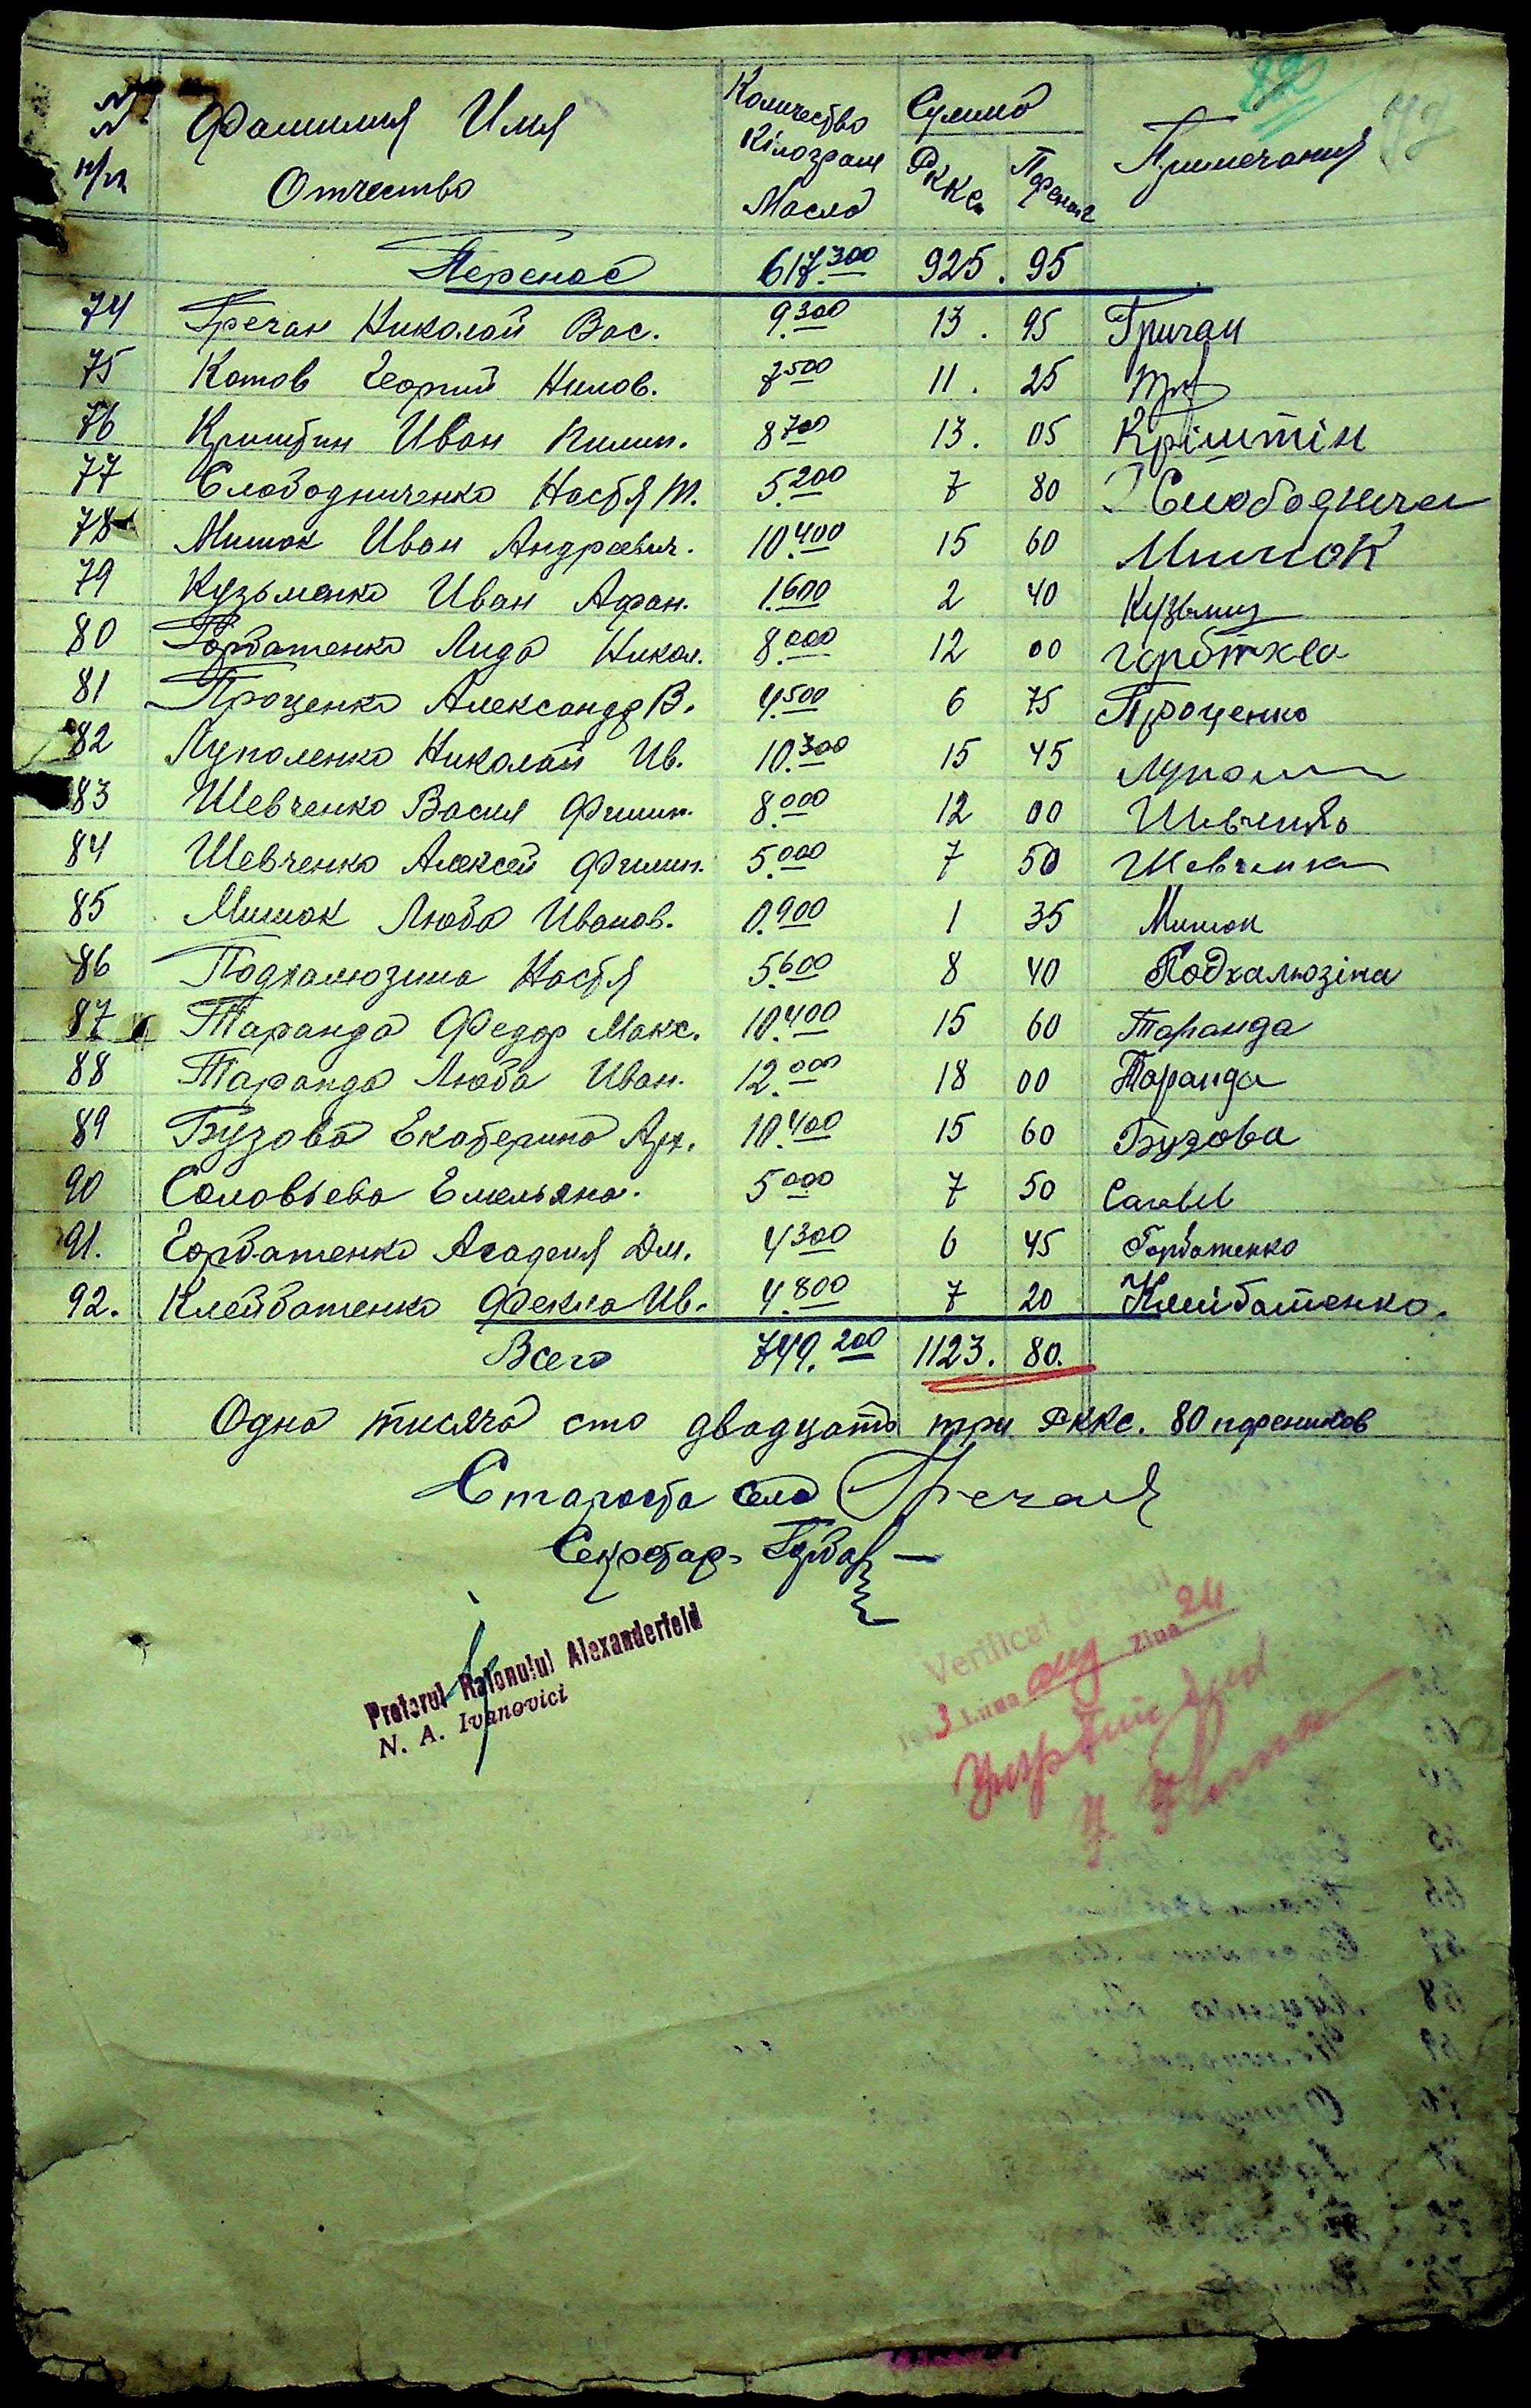 82
№№ п/п Фамилия Имя Отчество Количество Кілограм Масла Сумма РККС. Пфениг Примечания
Перенос 617.300 925. 95
74 Гречан Николай Вас. 9.300 13. 95 Гричан
75 Котов Георгий Нилов. 7500 11. 25
76 Криштин Иван Пилип. 8700 13. 05 Кріштін
77 Слободниченко Настя М. 5.200 7 80 Слободниче
78 Мишок Иван Андреевич. 10.400 15 60 Мишок
79 Кузьменко Иван Афан. 1.600 2 40 Кузьмен
80 Горбатенко Лида Никол. 8.000 12 00
81 Проценко Александр В. 4.500 6 75 Проценко
82 Луполенко Николай Ив. 10.300 15 45 Лупо
83 Шевченко Васил Филип. 8.000 12 00 Шевченко
84 Шевченко Алексей Филип. 5.000 7 50 Шевченка
85 Мишок Люба Иванов. 0.900 1 35 Мишок
86 Подхалюзина Настя 5.600 8 40 Подхалюзіна
87 Таранда Федор Макс. 10.400 15 60 Таранда
88 Таранда Люба Иван. 12.000 18 00 Таранда
89 Бузова Екатерина Арх. 10.400 15 60 Бузова
90 Соловьева Емельяна. 5000 7 50
91. Горбатенко Агафия Дм. 4300 6 45 Горбатенко
92. Клейбатенко Фекла Ив. 4.800 7 20 Клейбатенко.
Всего 749.200 1123. 80.
Одна тисяча сто двадцать три РККС. 80 пфеников
Староста села Гречан
Секретар Горба
Pretorul Raionului Alexanderfeld
N. A. Ivanovici
Verificat
3 Luna aug Ziua 24